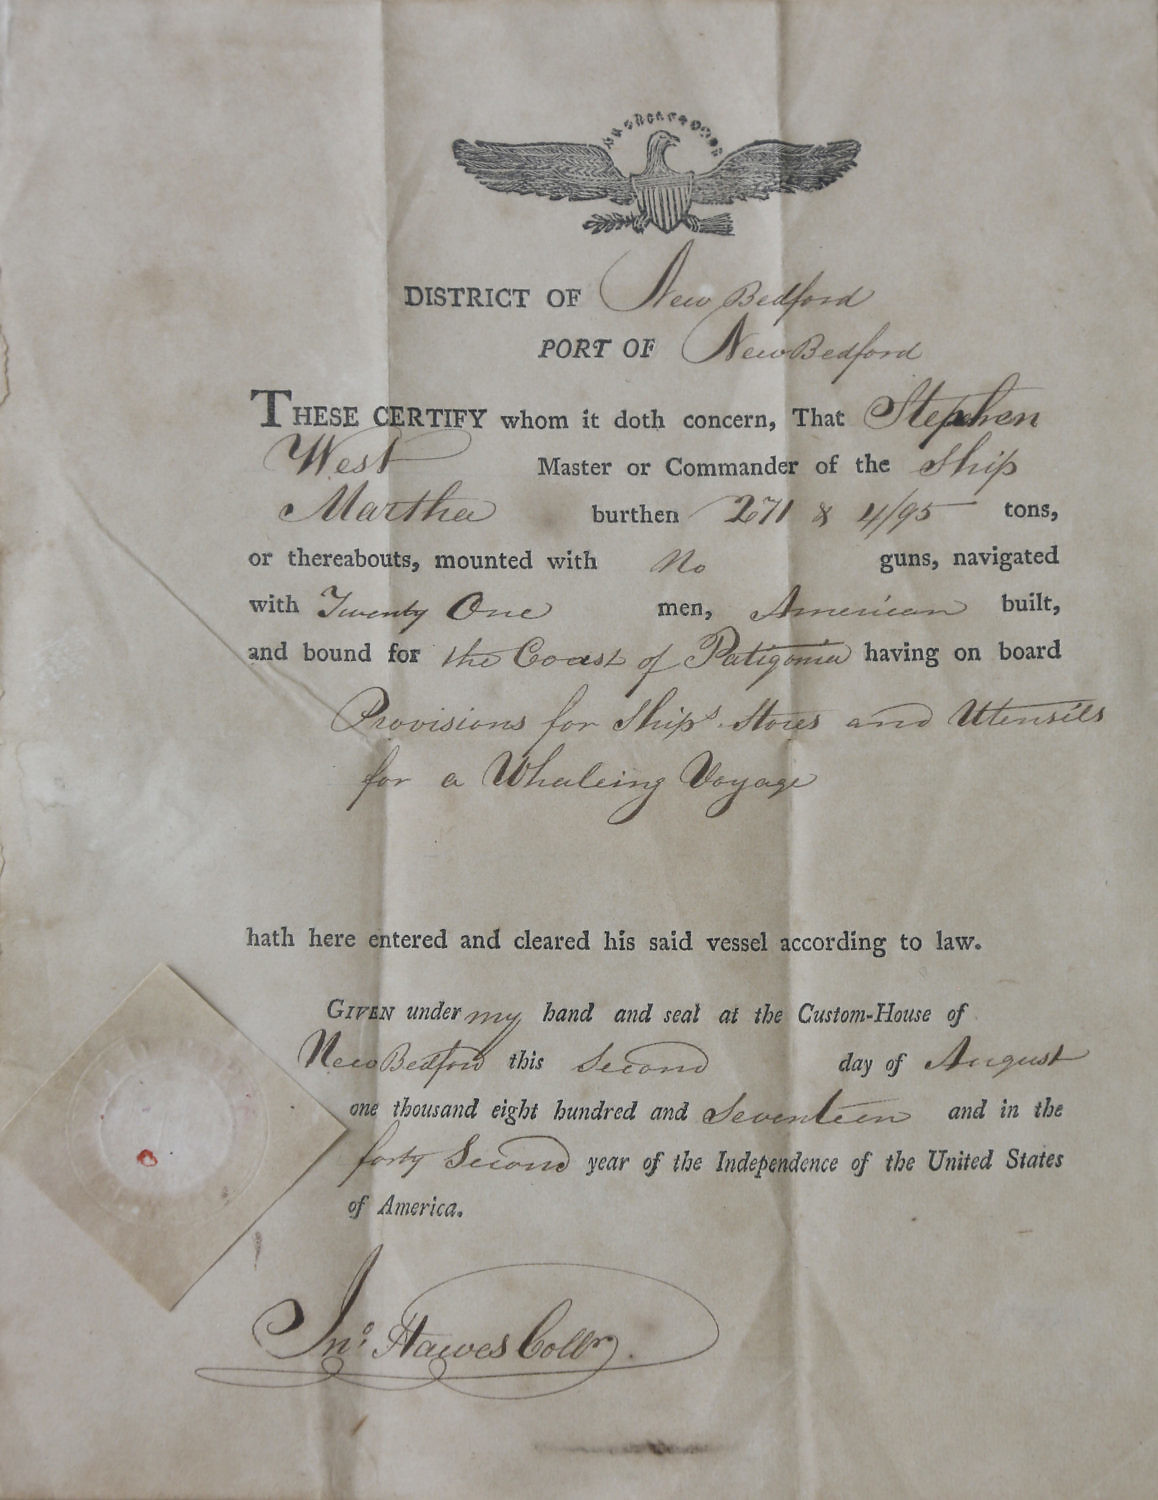 DISTRICT OF New Bedford
PORT OF New Bedford
THESE CERTIFY whom it doth concern, That Stephen
West Master or Commander of the Ship
Martha burthen 271 & 4/95 tons,
or thereabouts, mounted with No guns, navigated
with Twenty One men, American built,
and bound for the Coast of Patigonia having on board
Provisions for Ships Stores and Utensils
for a Whaleing Voyage
hath here entered and cleared his said vessel according to law.
GIVEN under my hand and seal at the Custom-House of
New Bedford this Second day of August
one thousand eight hundred and Seventeen and in the
forty Second year of the Independence of the United States
of America.
Jno. Hawes Collr.